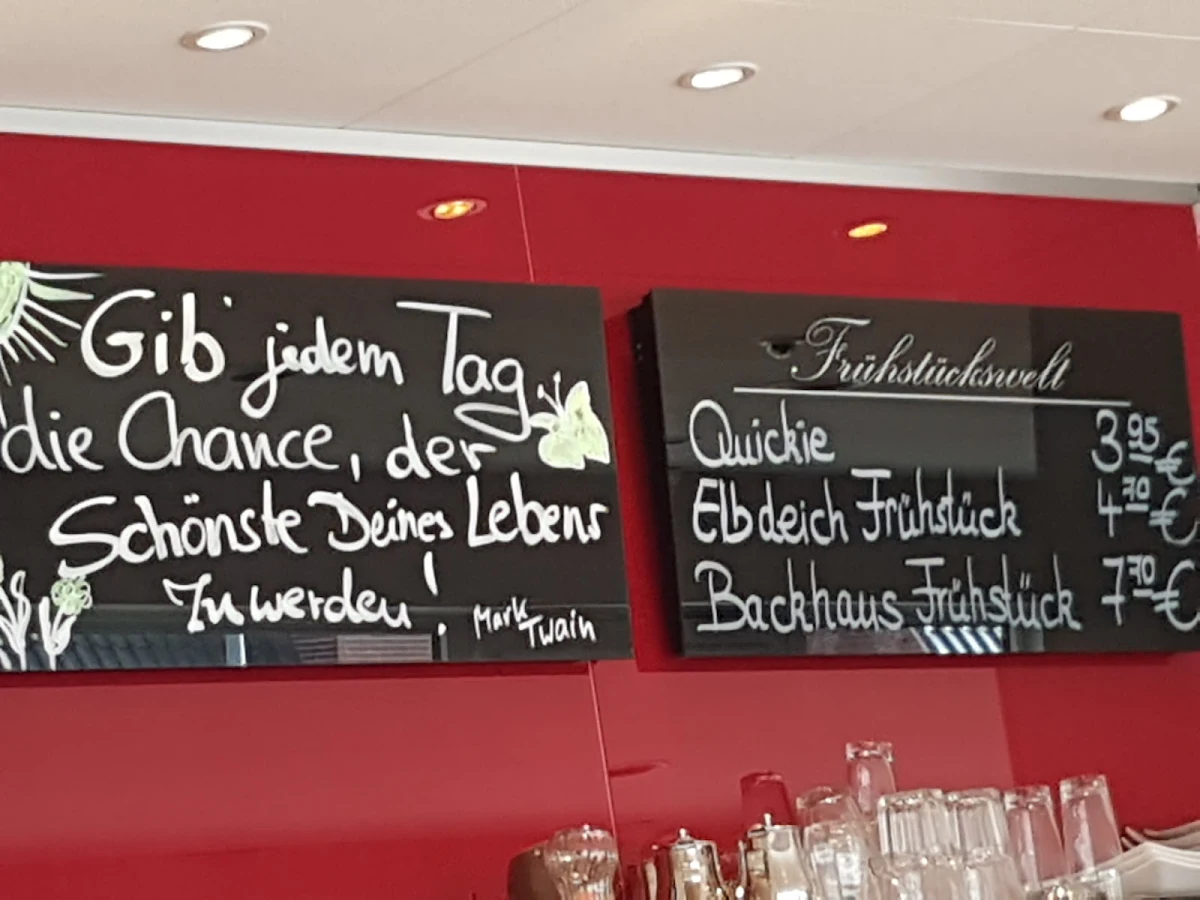 Gib' jedem Tag
die Chance, der
Schönste Deines Lebens
Zu werden!
Mark
Twain
Frühstückswelt
Quickie 3.95 €
Elbdeich Frühstück 4.70 €
Backhaus Frühstück 7.70 €